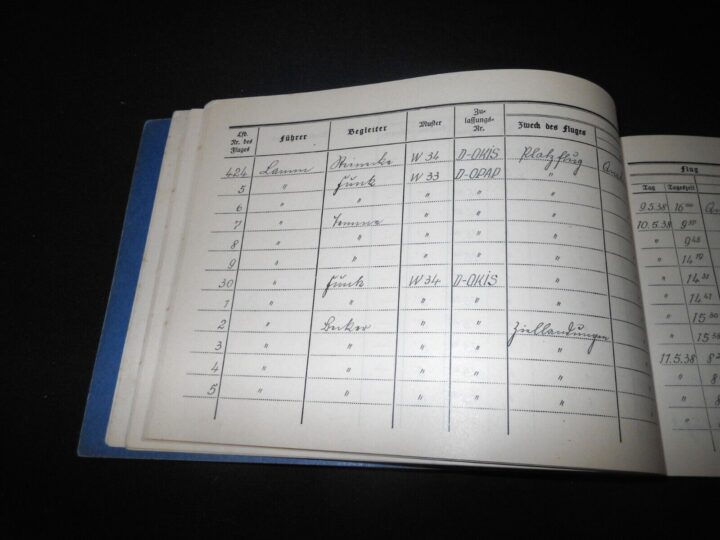 Lfd. Nr. des Fluges Führer Begleiter Muster Zu-lassungs-Nr. Zweck des Fluges
424 Lamm W 34 D-OKIS Platzflug
5 " Funk W 33 D-OPAP "
6 " " " "
7 " " " "
8 " " " " "
9 " " " " "
30 " Funk W 34 D-OKIS "
1 " " " " "
2 " Becker " " Ziellandungen
3 " " " " "
4 " " " " "
5 " " " " "
Flug
Tag Tageszeit
9.5.38 16
10.5.38 9
" 9
" 14
" 14
" 14
" 15
" 15
11.5.38 8
"
"
"